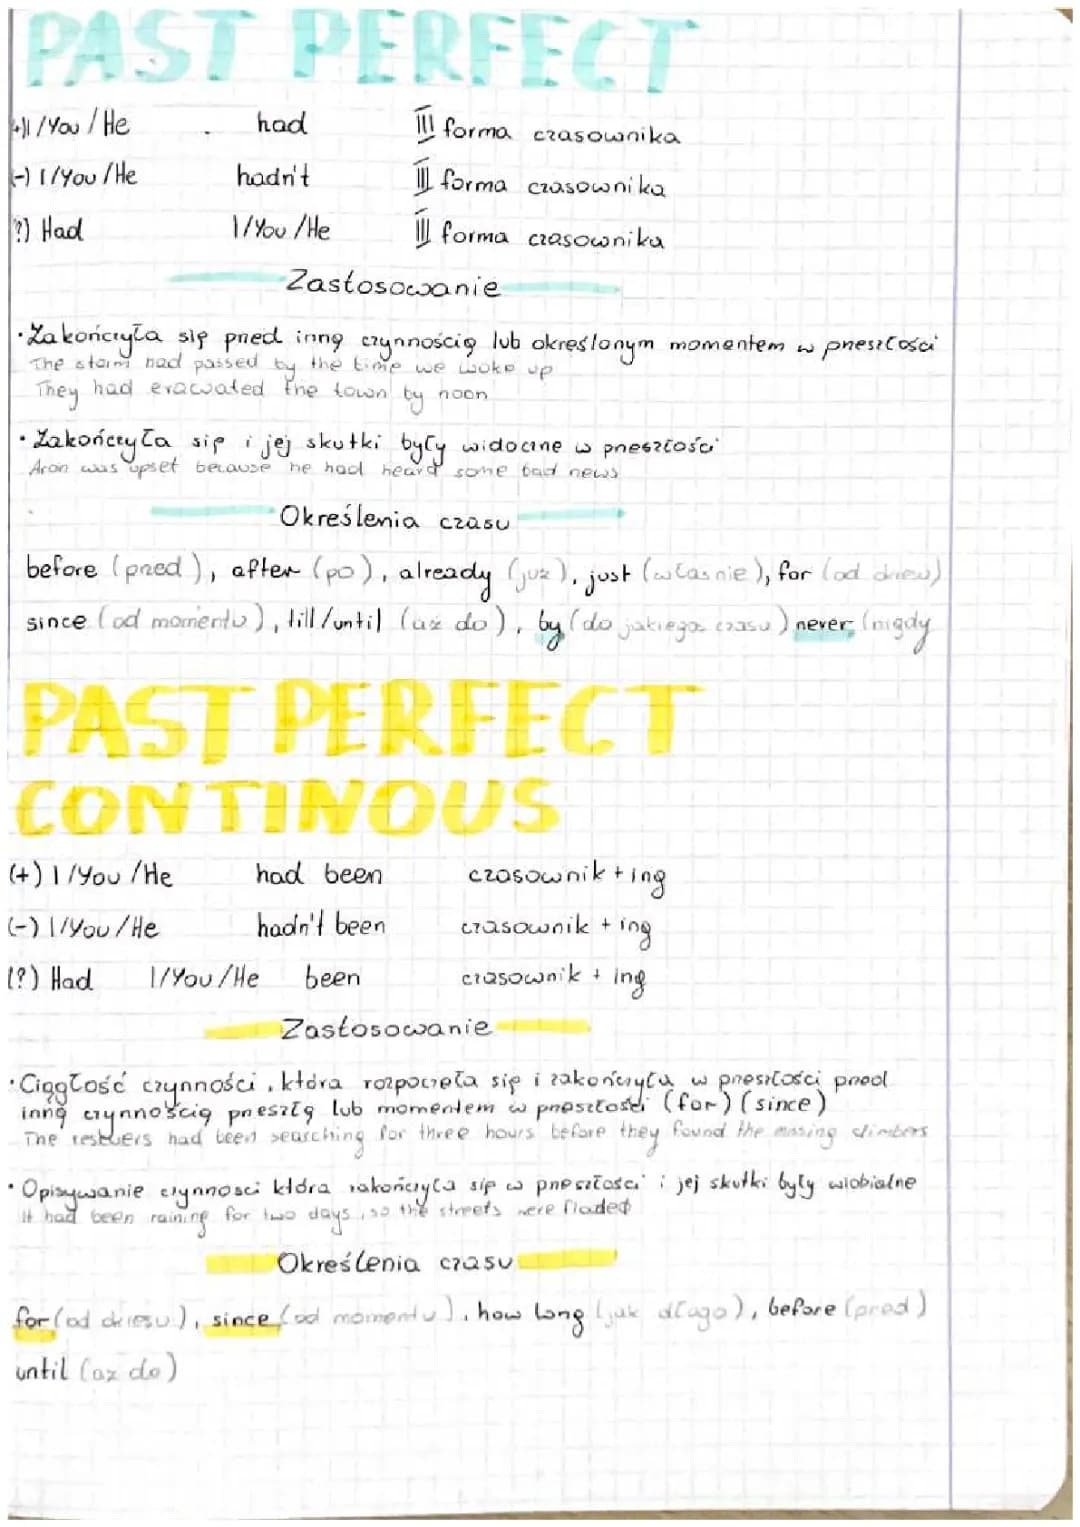 PAST PERFECT
(+) I/You/He had III forma czasownika
(-) I/You/He hadn't III forma czasownika
(?) Had I/You/He III forma czasownika
Zastosowanie
• Zakończyła się przed inną czynnością lub określonym momentem w przeszłości
The storm had passed by the time we woke up
They had evacuated the town by noon
• Zakończyła się i jej skutki były widoczne w przeszłości
Aron was upset because he had heard some bad news
Określenia czasu
before (przed), after (po), already (już), just (właśnie), for (od
since (od momentu), till/until (aż do), by (do jakiegoś czasu) never (nigdy
PAST PERFECT
CONTINOUS
(+) I/You/He had been czasownik + ing
(-) I/You/He hadn't been czasownik + ing
(?) Had I/You/He been czasownik + ing
Zastosowanie
• Ciągłość czynności, która rozpoczęła się i zakończyła w przeszłości przed
inną czynnością przeszłą lub momentem w przeszłości (for) (since)
The had been searching for three hours before they found the climbers
• Opisywanie czynnosci która zakończyła się w przeszłości i jej skutki były
It had been raining for two days, so the streets were
Określenia czasu
for (od okresu), since (od momentu), how long (jak długo), before (przed)
until (aż do)